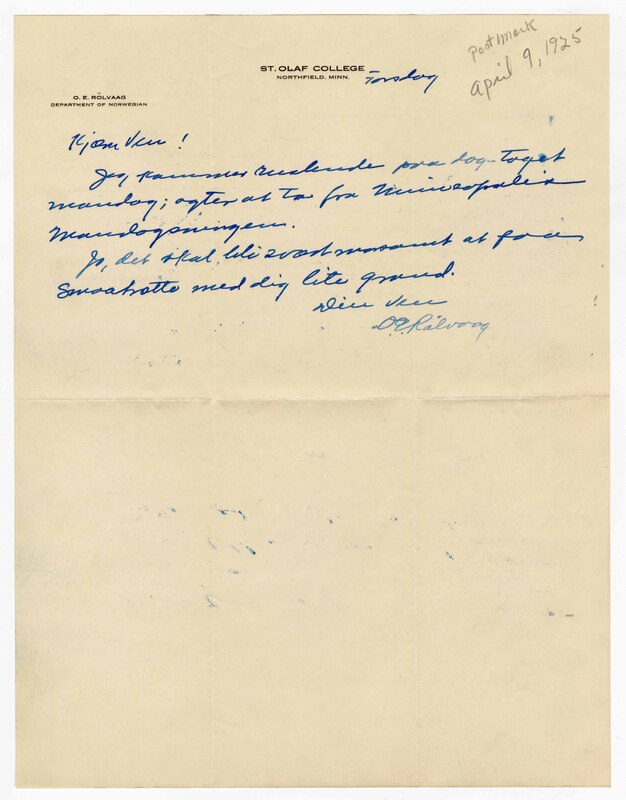 Postmark
April 9, 1925
ST. OLAF COLLEGE
NORTHFIELD, MINN.
Torsdag
O. E. RÖLVAAG
DEPARTMENT OF NORWEGIAN
Kjære Ven!
Jeg kommer rualende paa dag-toget
mandag; agter at ta fra Minneapolis
Mandagsmorgen.
Jo, det skal bli svært morsomt at faa
smaatratte med dig lite grand.
Din Ven
O.E. Rölvaag